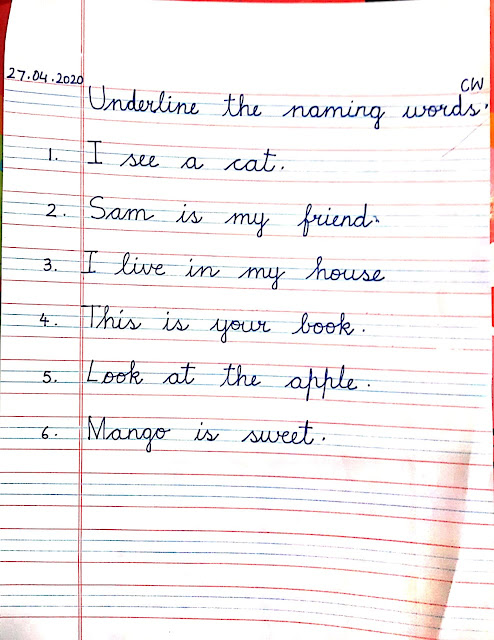 27.04.2020
CW
Underline the naming words.
1. I see a cat.
2. Sam is my friend.
3. I live in my house
4. This is your book.
5. Look at the apple.
6. Mango is sweet.